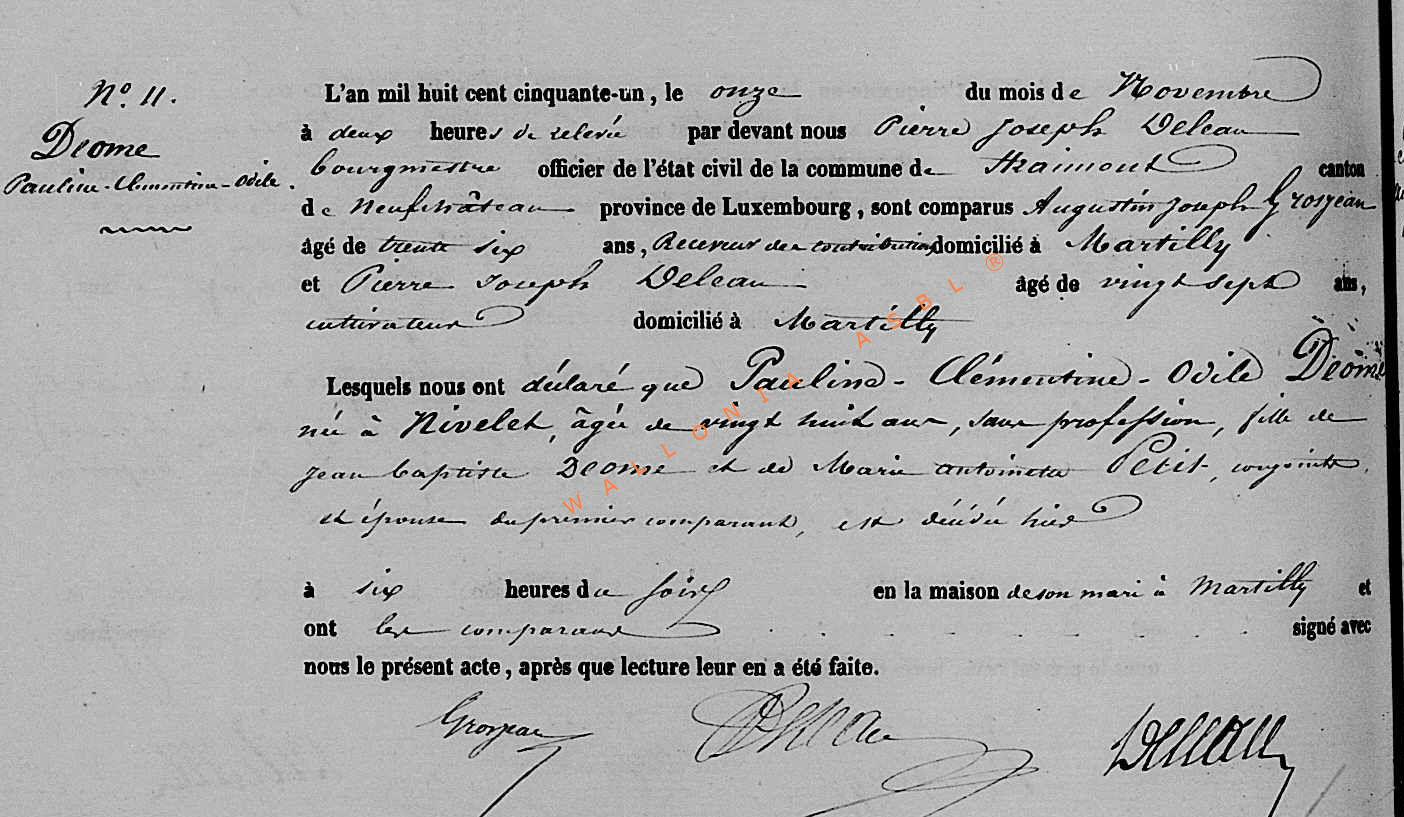 N.º 11.
Deome
Pauline-Clementine-Odile.
L'an mil huit cent cinquante-un, le onze du mois de Novembre
à deux heures de relevée par devant nous Pierre Joseph Deleau
bourgmestre officier de l'état civil de la commune de Straimont canton
de Neufchâteau province de Luxembourg, sont comparus Augustin Joseph Grosjean
âgé de trente six ans, Receveur des contributions domicilié à Martilly
et Pierre Joseph Deleau âgé de vingt sept ans,
cultivateur domicilié à Martilly
Lesquels nous ont déclaré que Pauline-Clémentine-Odile Deôme
née à Nivelet, âgée de vingt huit ans, sans profession, fille de
jean baptiste Deome et de Marie antoinette Petit, conjoints,
et épouse du premier comparant, est décédée hier
à six heures du soir en la maison de son mari à Martilly et
ont les comparans signé avec
nous le présent acte, après que lecture leur en a été faite.
Grosjean Deleau Deleau
WALLONIA ASBL ®